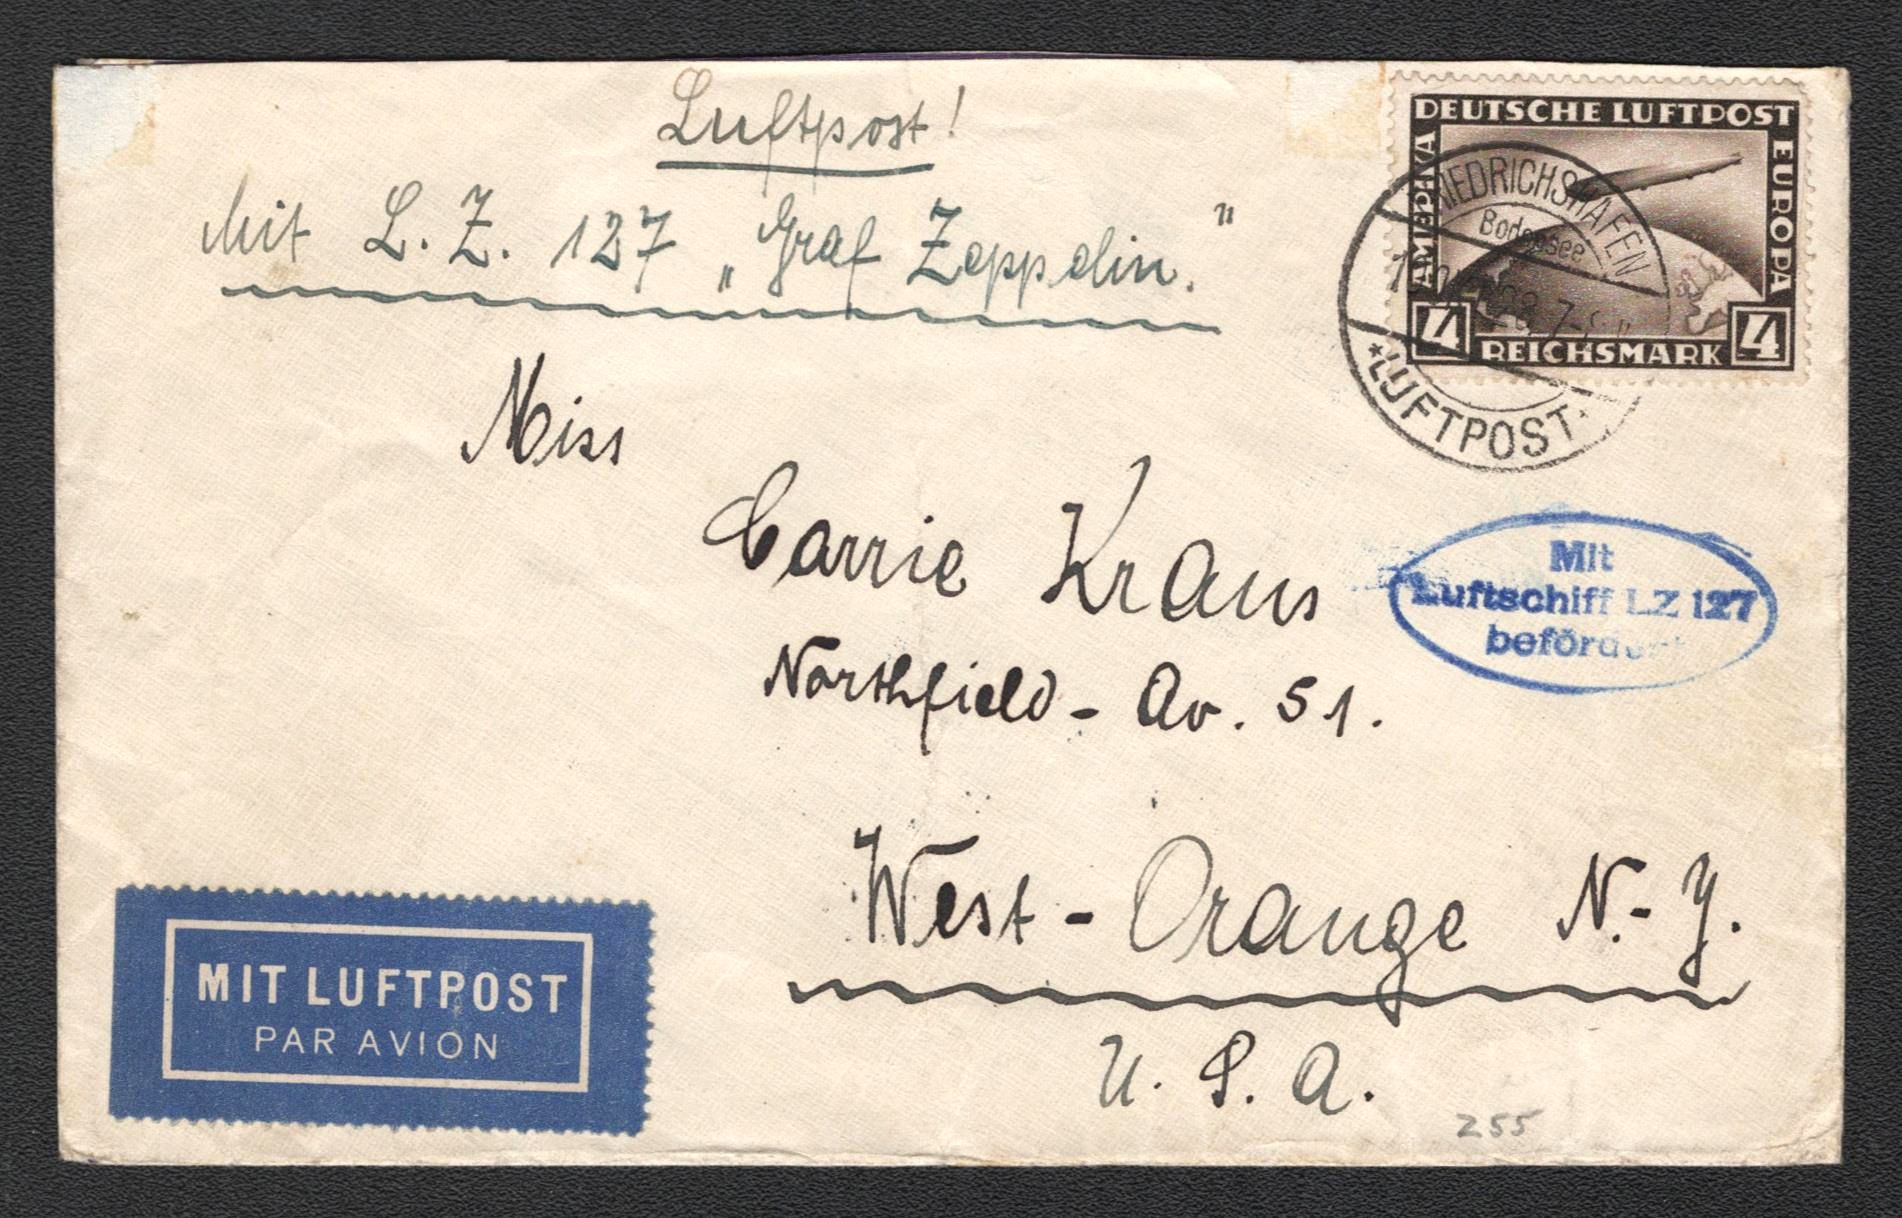 Luftpost!
Mit L. Z. 127 „Graf Zeppelin."
DEUTSCHE LUFTPOST
AMERIKA
EUROPA
4 REICHSMARK 4
FRIEDRICHSHAFEN
Bodensee
*LUFTPOST*
Miss
Carrie Kraus
Northfield - Av. 51.
West - Orange N.-Y.
U. S. A.
Mit
Luftschiff LZ 127
befördert
MIT LUFTPOST
PAR AVION
255